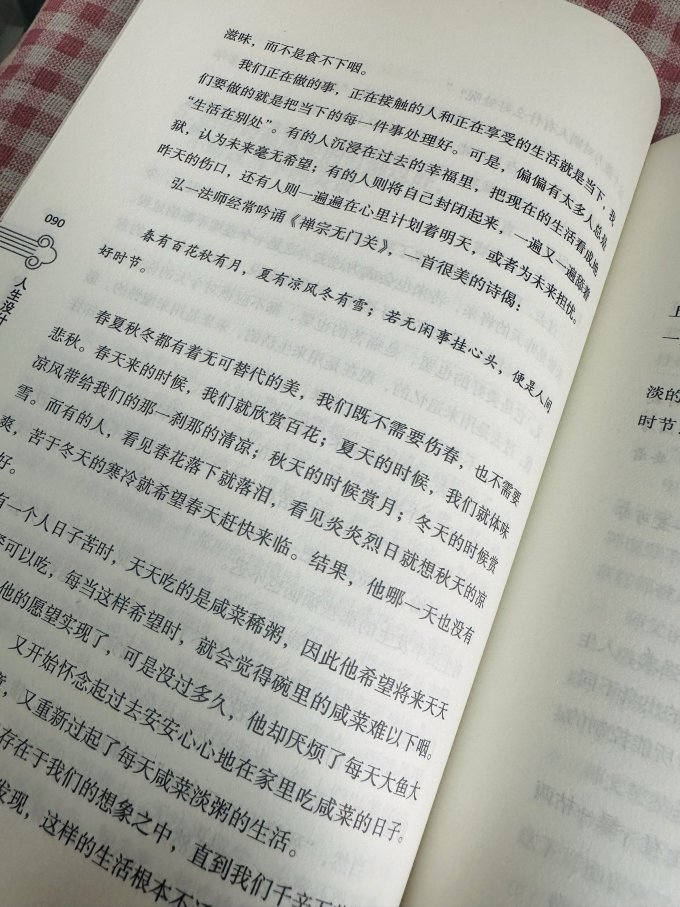 滋味，而不是食不下咽。
我们正在做的事，正在接触的人和正在享受的生活就是当下，我
们要做的就是把当下的每一件事处理好。可是，偏偏有太多人总是
“生活在别处”。有的人沉浸在过去的幸福里，把现在的生活看成地
狱，认为未来毫无希望；有的人则将自己封闭起来，一遍又一遍舔着
昨天的伤口，还有人则一遍遍在心里计划着明天，或者为未来担忧。
弘一法师经常吟诵《禅宗无门关》，一首很美的诗偈：
春有百花秋有月，夏有凉风冬有雪；若无闲事挂心头，便是人间
好时节。
春夏秋冬都有着无可替代的美，我们既不需要伤春，也不需要
悲秋。春天来的时候，我们就欣赏百花；夏天的时候，我们就体味
凉风带给我们的那一刹那的清凉；秋天的时候赏月；冬天的时候赏
雪。而有的人，看见春花落下就落泪，看见炎炎烈日就想秋天的凉
爽，苦于冬天的寒冷就希望春天赶快来临。结果，他哪一天也没有
好。
有一个人日子苦时，天天吃的是咸菜稀粥，因此他希望将来天天
可以吃，每当这样希望时，就会觉得碗里的咸菜难以下咽。
他的愿望实现了，可是没过多久，他却厌烦了每天大鱼大
，又开始怀念起过去安安心心地在家里吃咸菜的日子。
，又重新过起了每天咸菜淡粥的生活。
存在于我们的想象之中，直到我们千辛万
发现，这样的生活根本不
090
人生没
上
一
淡的
时节